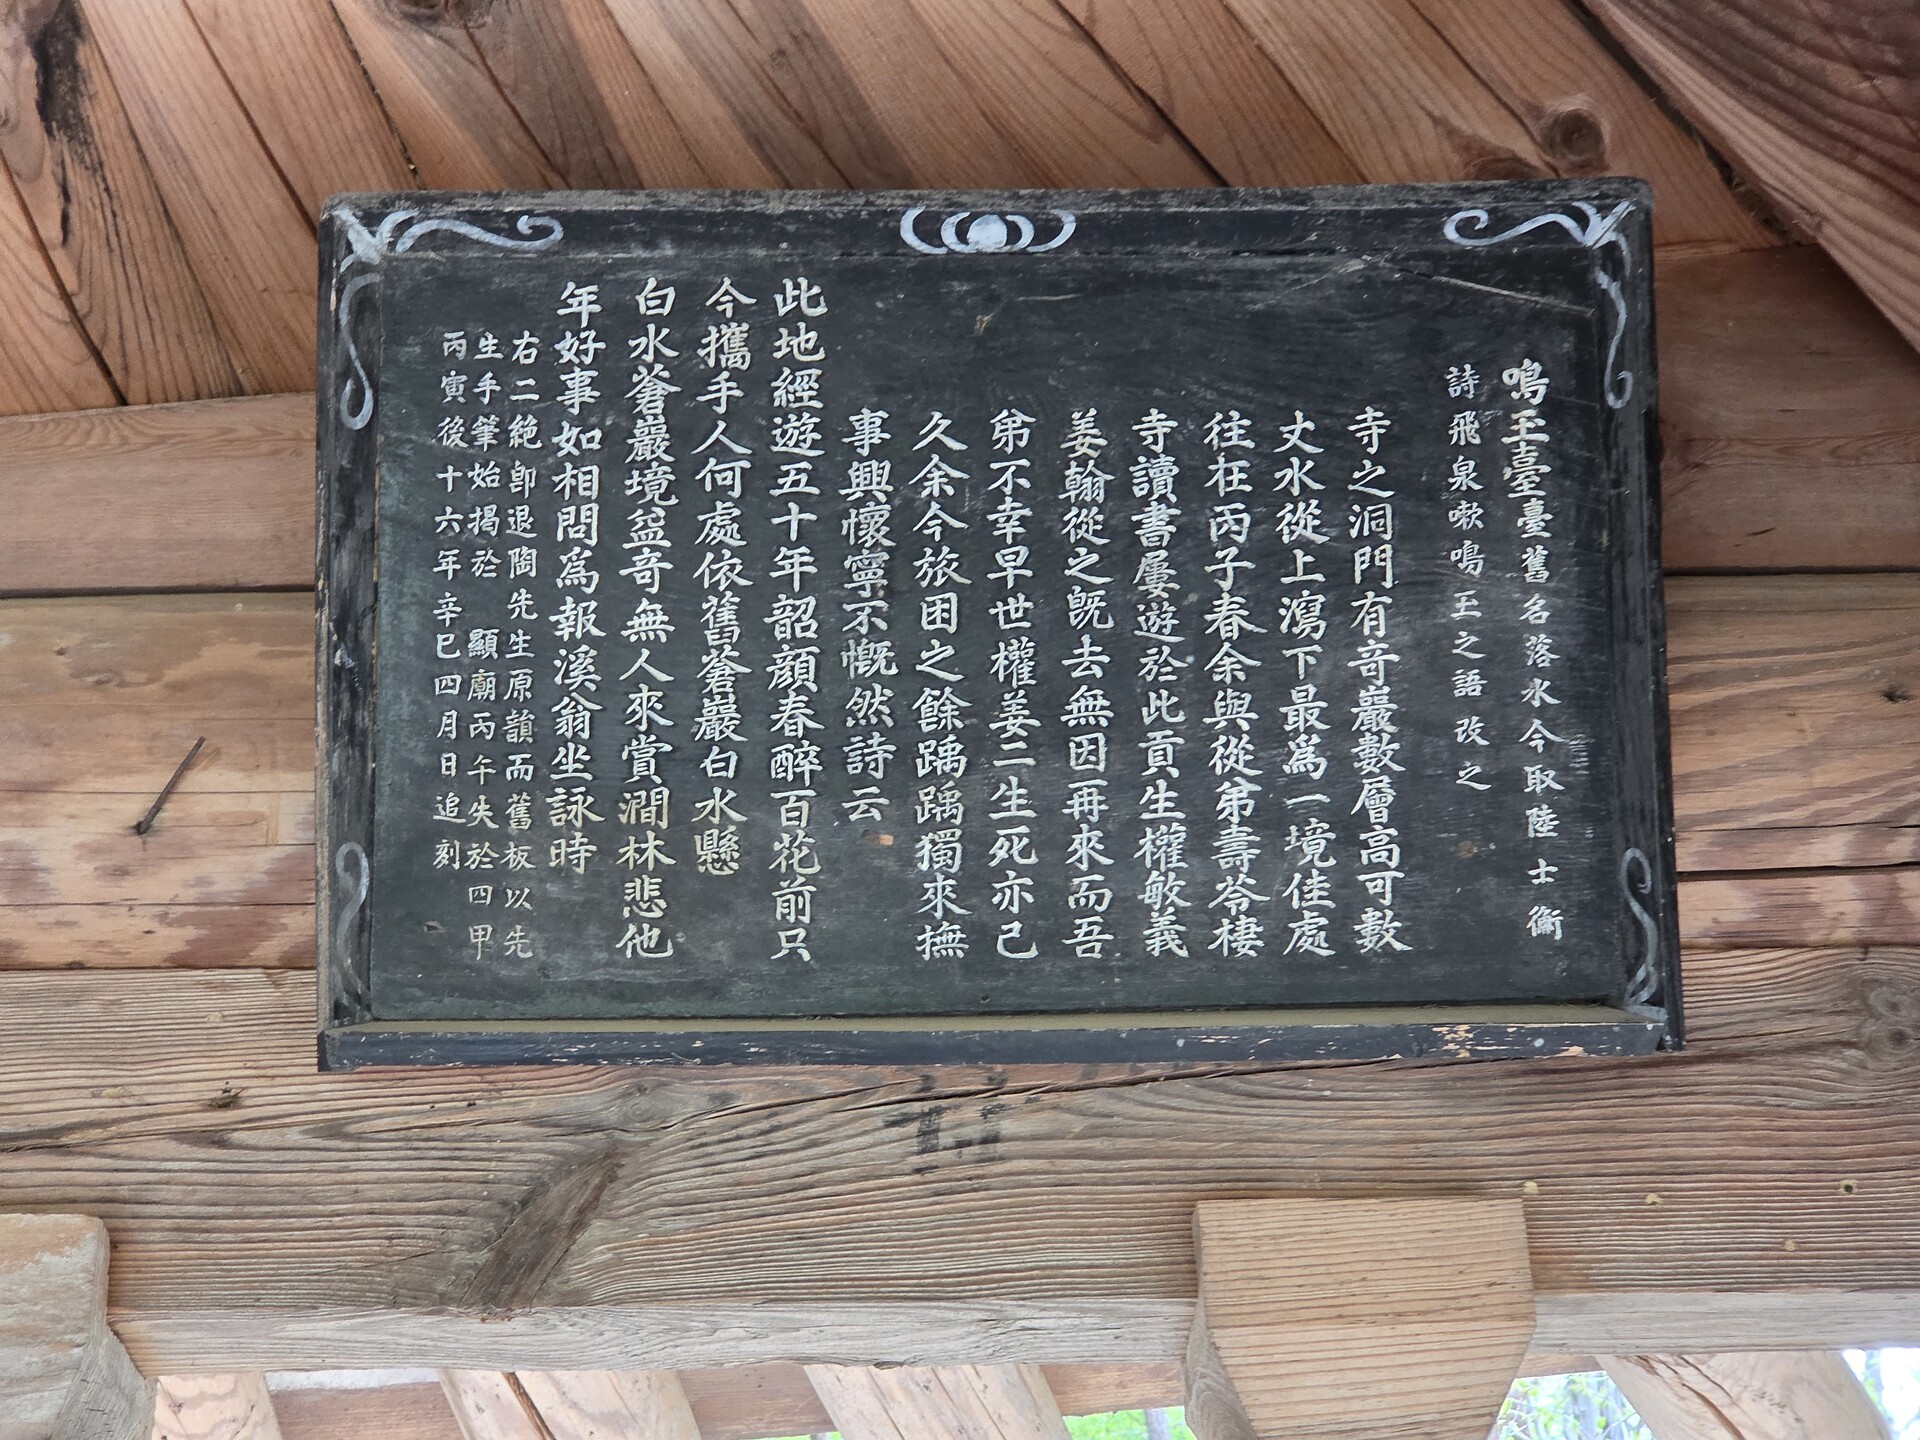 鳴玉臺臺舊名落水今取陸士衡
詩飛泉嗽鳴玉之語改之
寺之洞門有奇巖數層高可數
丈水從上瀉下最爲一境佳處
往在丙子春余與從弟壽苓棲
寺讀書屢遊於此貢生權敏義
姜翰從之旣去無因再來而吾
弟不幸早世權姜二生死亦已
久余今旅困之餘踽踽獨來撫
事興懷寧不慨然詩云
此地經遊五十年韶顔春醉百花前只
今攜手人何處依舊蒼巖白水懸
白水蒼巖境益奇無人來賞澗林悲他
年好事如相問爲報溪翁坐詠時
右二絶卽退陶先生原韻而舊板以先
生手筆始揭於 顯廟丙午失於四甲
丙寅後十六年辛巳四月日追刻